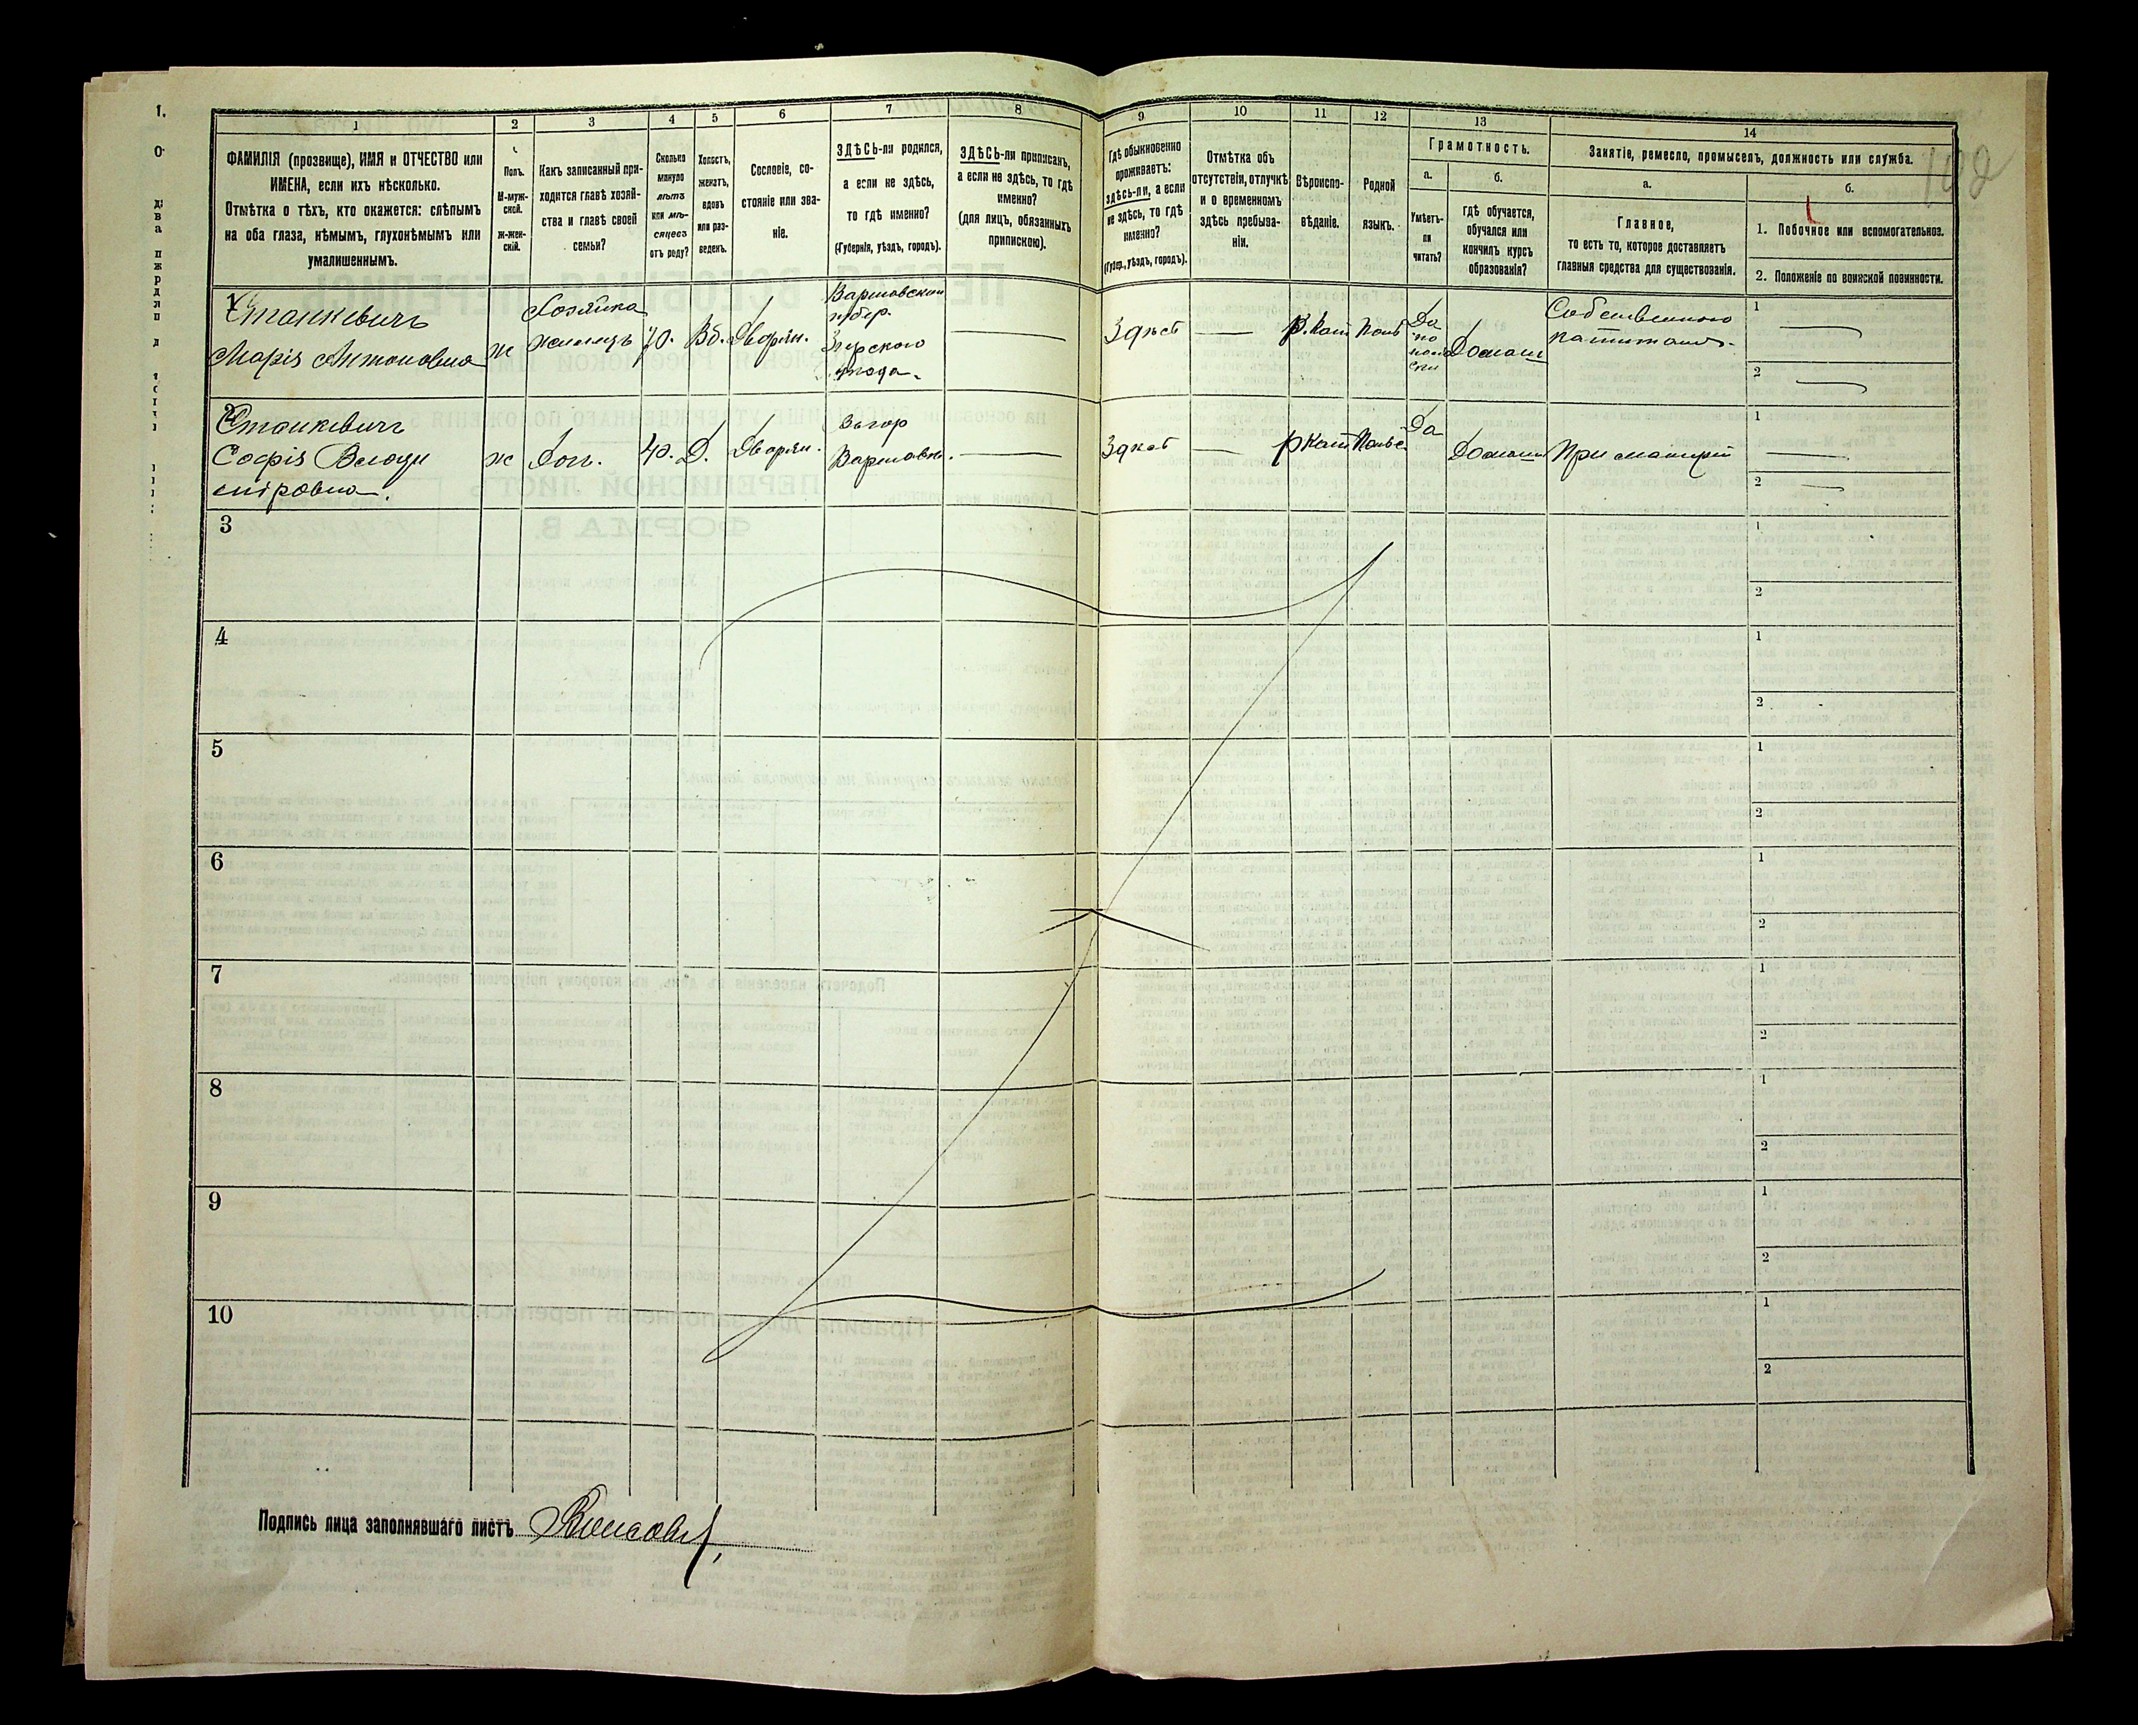 1
2
3
4
5
6
7
8
9
10
11
12
13
14
ФАМИЛІЯ (прозвище), ИМЯ и ОТЧЕСТВО или
ИМЕНА, если ихъ нѣсколько.
Отмѣтка о тѣхъ, кто окажется: слѣпымъ
на оба глаза, нѣмымъ, глухонѣмымъ или
умалишеннымъ.
Полъ.
М-муж-
ской.
Ж-жен-
скій.
Какъ записанный при-
ходится главѣ хозяй-
ства и главѣ своей
семьи?
Сколько
минуло
лѣтъ
или мѣ-
сяцевъ
отъ роду?
Холостъ,
женатъ,
вдовъ
или раз-
веденъ.
Сословіе, со-
стояніе или зва-
ніе.
ЗДѢСЬ-ли родился,
а если не здѣсь,
то гдѣ именно?
(Губернія, уѣздъ, городъ).
ЗДѢСЬ-ли приписанъ,
а если не здѣсь, то гдѣ
именно?
(для лицъ, обязанныхъ
припискою).
Гдѣ обыкновенно
проживаетъ:
здѣсь-ли, а если
не здѣсь, то гдѣ
именно?
(Губер., уѣздъ, городъ).
Отмѣтка объ
отсутствіи, отлучкѣ
и о временномъ
здѣсь пребыва-
ніи.
Вѣроиспо-
вѣданіе.
Родной
языкъ.
Грамотность.
а.
Умѣетъ-
ли
читать?
б.
гдѣ обучается,
обучался или
кончилъ курсъ
образованія?
Занятіе, ремесло, промыселъ, должность или служба.
а.
Главное,
то есть то, которое доставляетъ
главныя средства для существованія.
б.
1. Побочное или вспомогательное.
2. Положеніе по воинской повинности.
102
1
Станкевичъ
Марія Антоновна
ж
Хозяйка
70.
Вд.
Дворян.
Варшавской
губер.
уѣзда.
Здѣсь
р. Кат
Поль
Да
по
поль
ски
Домаш
Собственного
капитала.
1
2
2
Станкевичъ
Софія Влади
міровна.
ж
Доч.
40.
Д.
Дворян.
Варшава.
Здѣсь
р Кат
Польс
Да
Домаш
При матери
1
2
3
1
2
4
1
2
5
1
2
6
1
2
7
1
2
8
1
2
9
1
2
10
1
2
Подпись лица заполнявшаго листъ